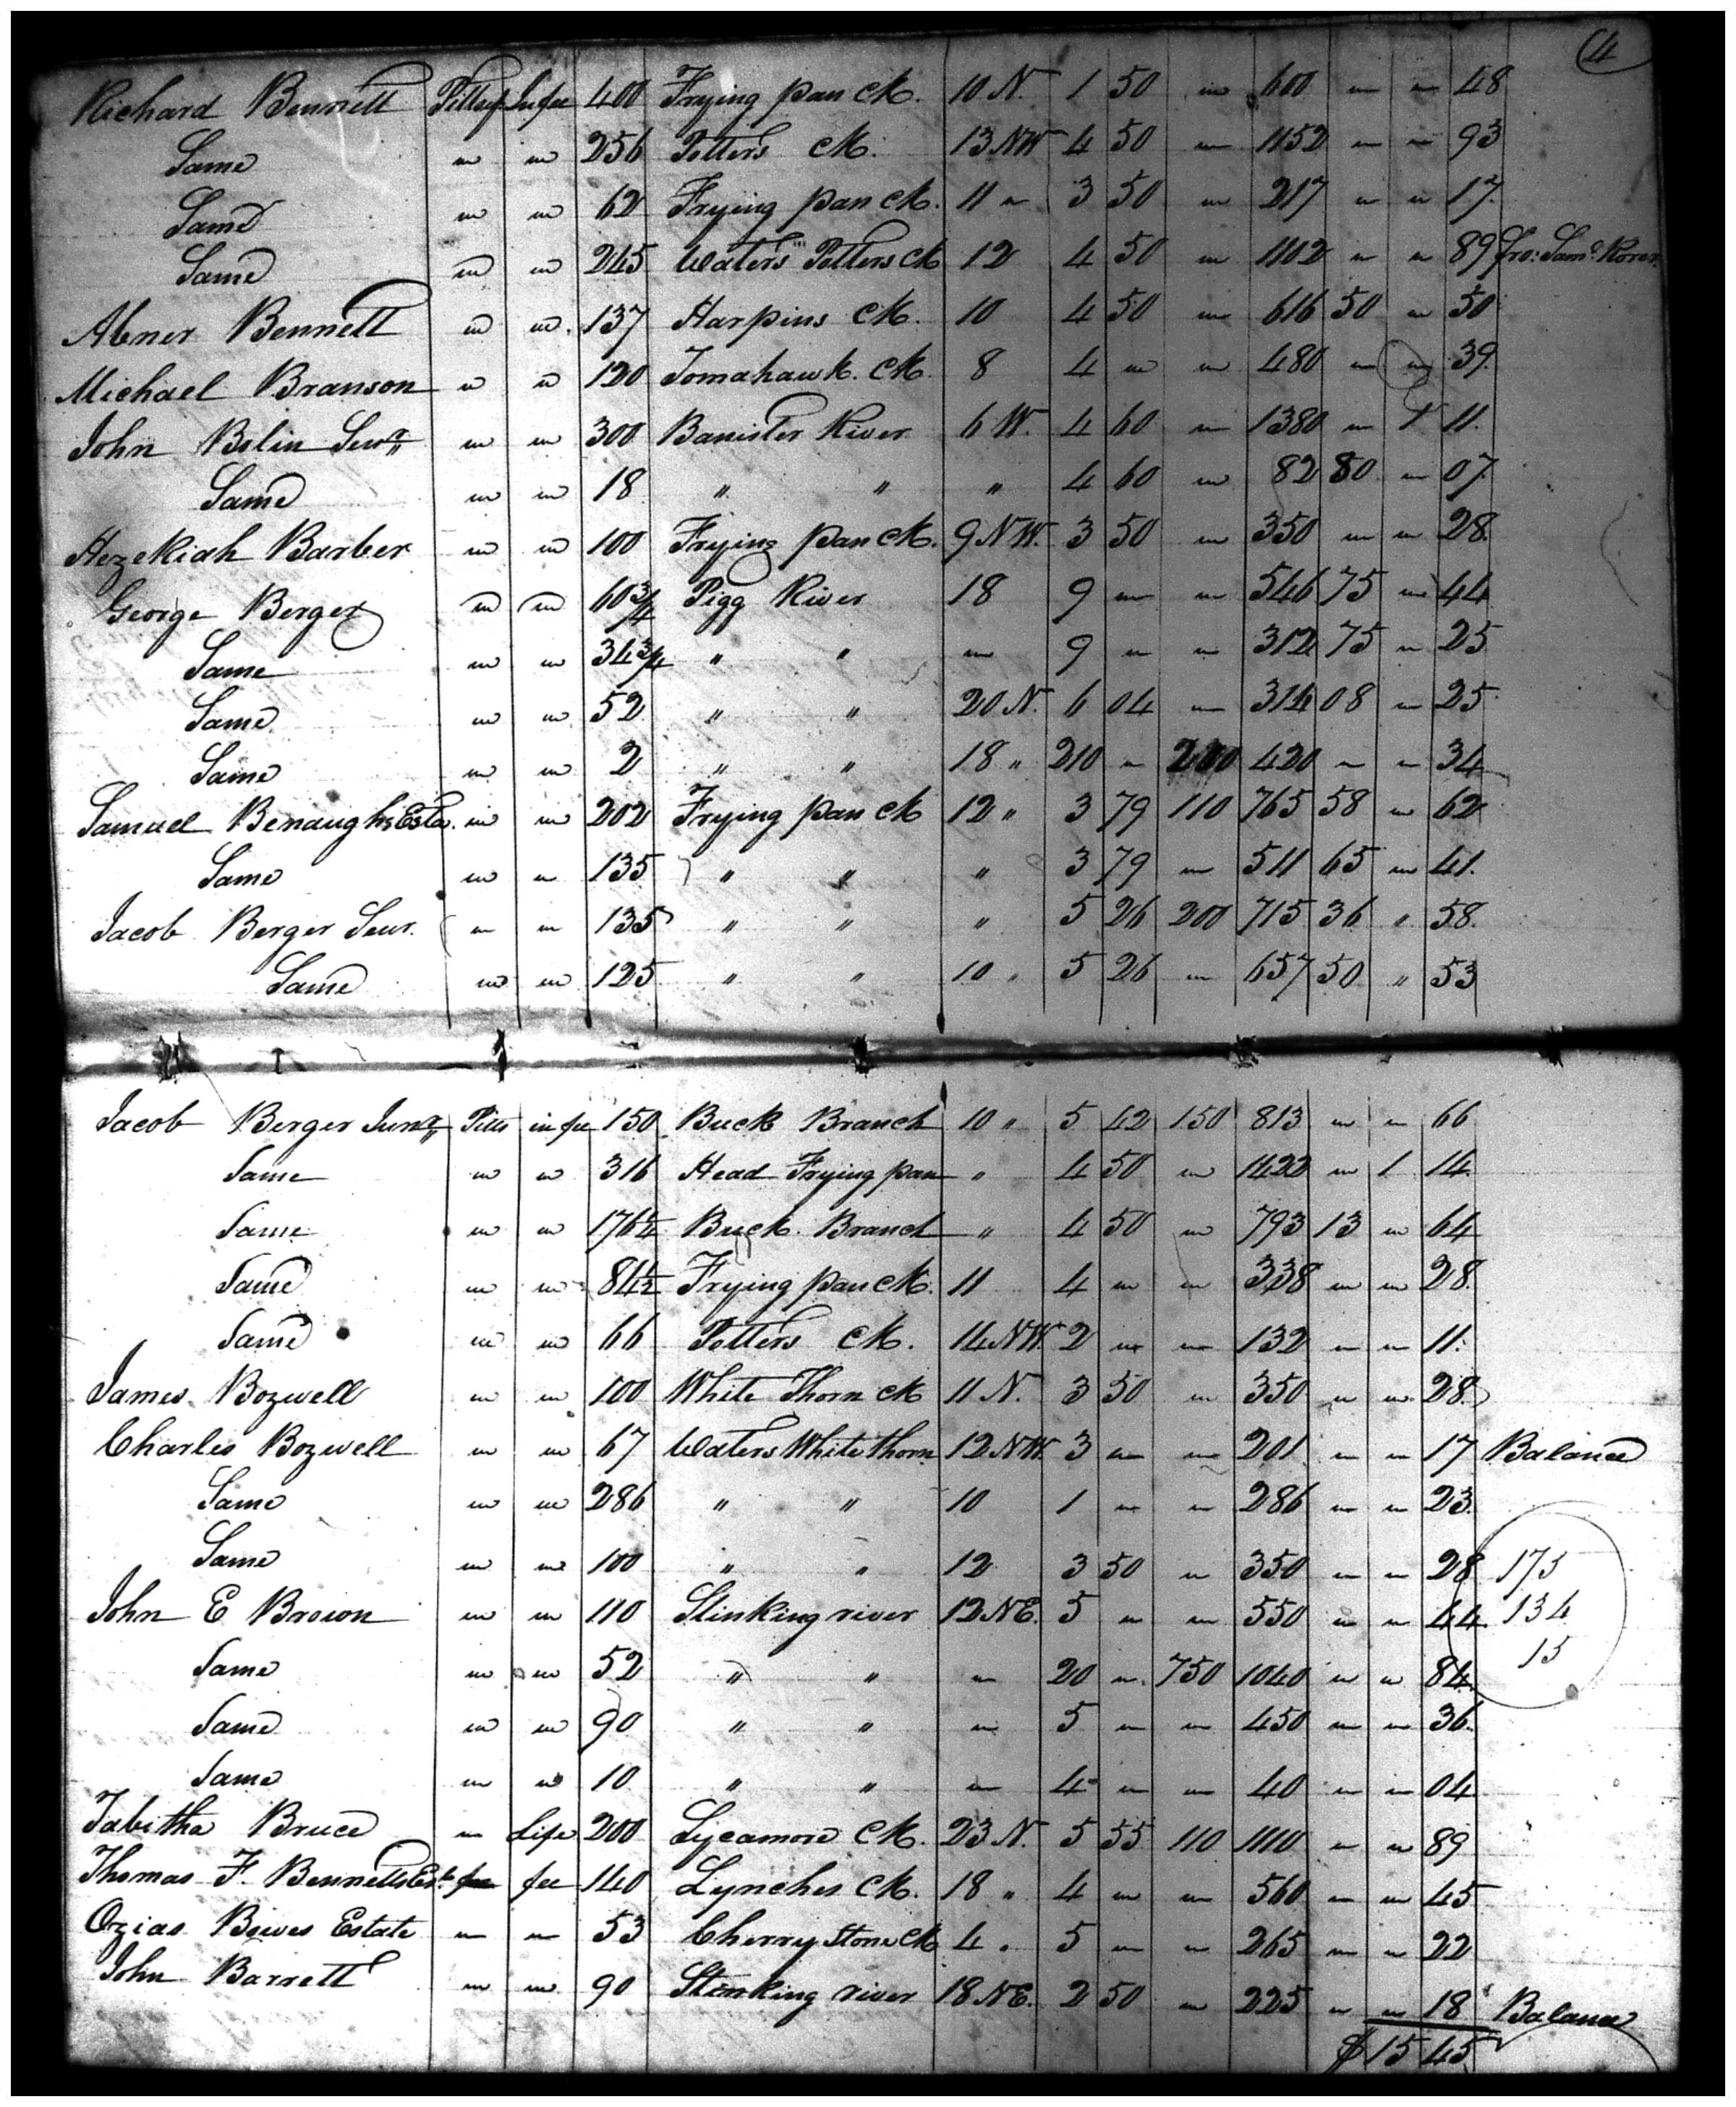 4
Richard Bennett Pittsy In fee 400 Frying pan ck. 10 N. 1 50 " 600 " " 48
Same " " 256 Potters ck. 13 NW 4 50 " 1152 " " 93
Same " " 62 Frying pan ck. 11 " 3 50 " 217 " " 17.
Same " " 245 Waters Potters ck 12 4 50 " 1102 " " 89 fro: Saml. Rorer.
Abner Bennett " " 137 Harpins ck. 10 4 50 " 616 50 " 50
Michael Branson " " 120 Tomahawk. ck. 8 4 " " 480 " " 39.
John Bolin Senr. " " 300 Banister River 6 W. 4 60 " 1380 " 1 11.
Same " " 18 " " " 4 60 " 82 80 " 07.
Hezekiah Barber " " 100 Frying pan ck. 9 NW. 3 50 " 350 " " 28.
George Berger " " 60 3/4 Pigg River 18 9 " " 546 75 " 44
Same " " 34 3/4 " " " 9 " " 312 75 " 25
Same " " 52 " " 20 N. 6 04 " 314 08 " 25
Same " " 2 " " 18 " 210 " 200 420 " " 34
Samuel Benaughs Esta. " " 202 Frying pan ck 12 " 3 79 110 765 58 " 62
Same " " 135 " " " 3 79 " 511 65 " 41.
Jacob Berger Senr. " " 135 " " " 5 26 200 715 36 " 58.
Same " " 125 " " 10 " 5 26 " 657 50 " 53
Jacob Berger Junr. Pitts in fee 150 Buck Branch 10 " 5 42 150 813 " " 66
Same " " 316 Head Frying pan " 4 50 " 1422 " 1 14.
Same " " 176 1/4 Buck Branch " 4 50 " 793 13 " 64
Same " " 84 1/2 Frying pan ck. 11 4 " " 338 " " 28.
Same " " 66 Potters ck. 14 NW. 2 " " 132 " " 11.
James Bozwell " " 100 White Thorn ck 11 N. 3 50 " 350 " " 28.
Charles Bozwell " " 67 Waters White thorn 12 NW. 3 " " 201 " " 17 Balance
Same " " 286 " " 10 1 " " 286 " " 23.
Same " " 100 " " 12 3 50 " 350 " " 28 175
John E Brown " " 110 Stinking river 12 NE. 5 " " 550 " " 44. 134
Same " " 52 " " " 20 " 750 1040 " " 84. 15
Same " " 90 " " " 5 " " 450 " " 36.
Same " " 10 " " " 4 " " 40 " " 04
Tabitha Bruce " Life 200 Sycamore ck. 23 N. 5 55 110 1110 " " 89
Thomas F. Bennetts Est. fee 140 Lynches ck. 18 " 4 " " 560 " " 45
Ozias Bowes Estate " " 53 Cherry Stone ck 4 " 5 " " 265 " " 22
John Barrett " " 90 Stinking river 18 NE. 2 50 " 225 " " 18 Balance
$15 45